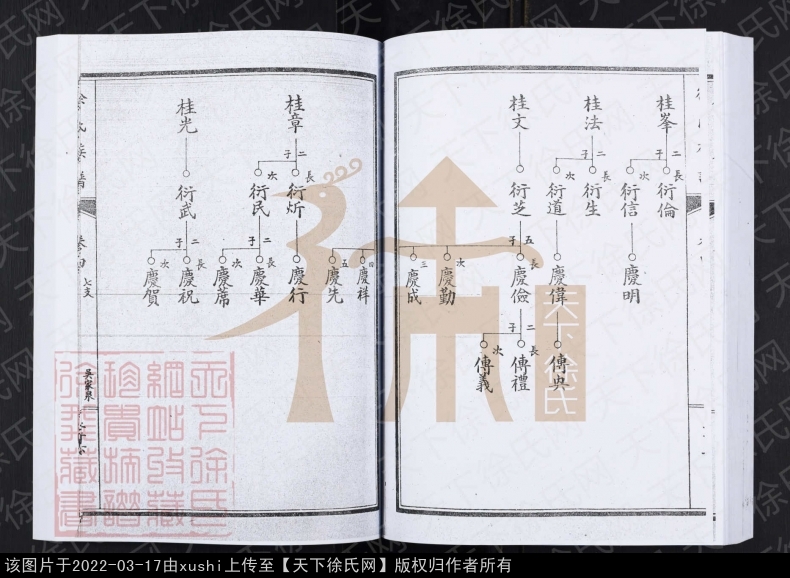 桂峯
二子
長 衍倫
次 衍信
慶明
桂法
二子
長 衍生
次 衍道
慶偉
傳典
桂文
衍芝
五子
長 慶儉
次 慶勤
三 慶成
四 慶祥
五 慶先
二子
長 傳禮
次 傳義
桂章
二子
長 衍炘
次 衍民
慶行
二子
長 慶華
次 慶席
桂光
衍武
二子
長 慶祝
次 慶賀
徐氏族譜
卷四
七支
吴家泉
天下徐氏
天下徐氏网
该图片于2022-03-17由xushi上传至【天下徐氏网】版权归作者所有